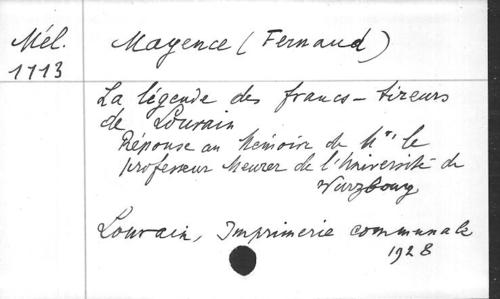 Mél. Mayence (Fernand)
1713
La légende des francs-tireurs
de Louvain
Réponse au Mémoire de Mr. le
professeur Meurer de l'Université de
Wurzbourg
Louvain, Imprimerie communale
1928